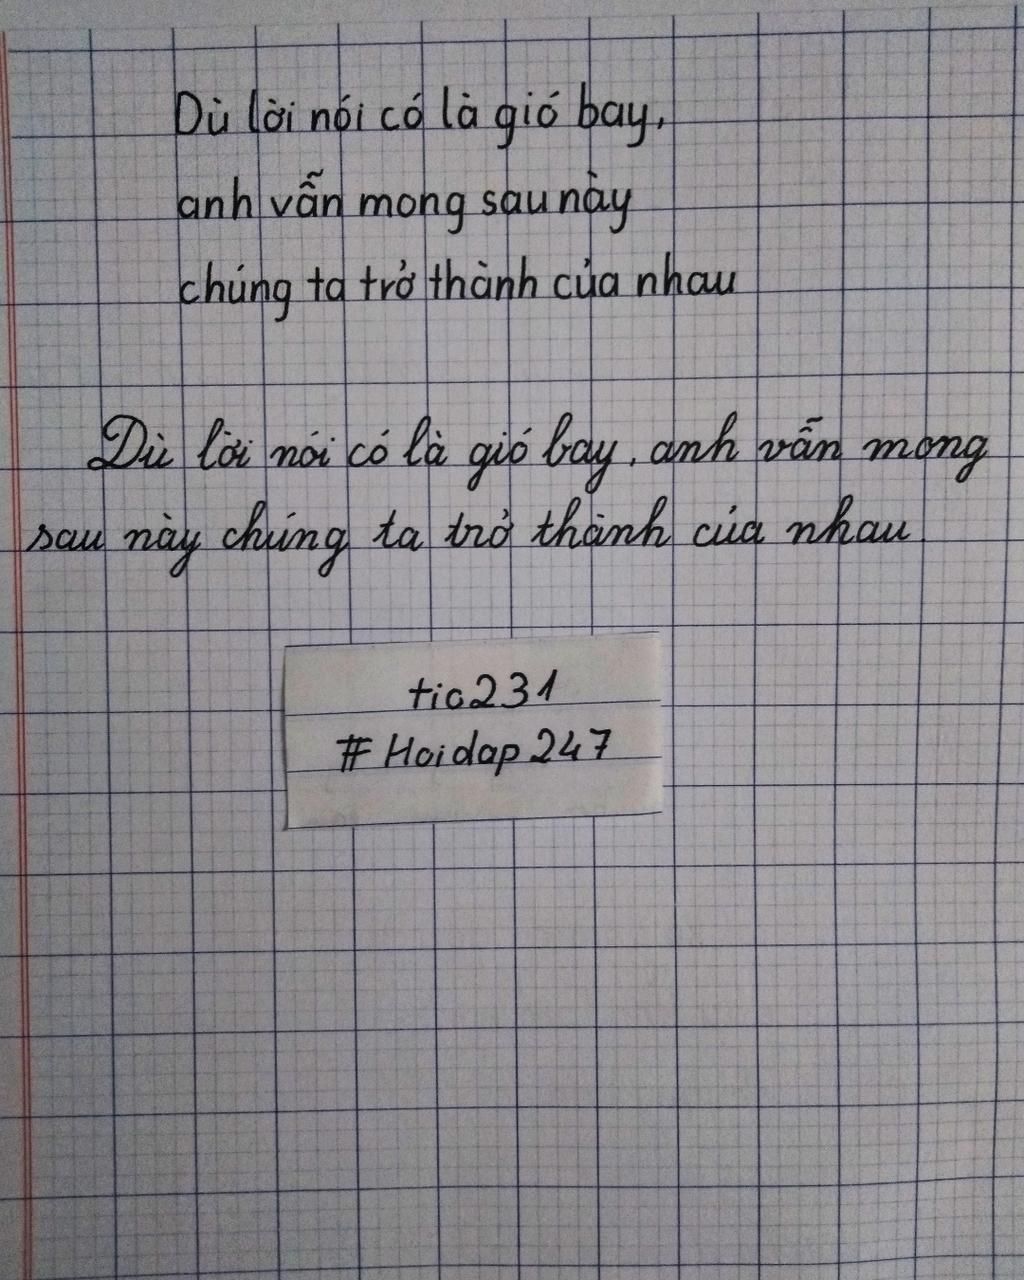 Dù lời nói có là gió bay,
anh vẫn mong sau này
chúng ta trở thành của nhau
Dù lời nói có là gió bay, anh vẫn mong
sau này chúng ta trở thành của nhau
tic231
#Hoidap247